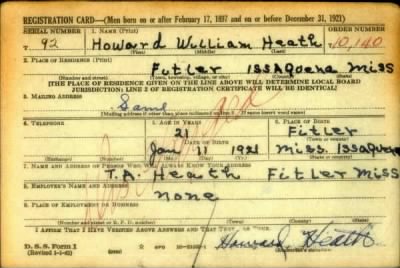 REGISTRATION CARD—(Men born on or after February 17, 1897 and on or before December 31, 1921)
SERIAL NUMBER 1. NAME (Print) ORDER NUMBER
T 92 Howard William Heath 10,140
(First) (Middle) (Last)
2. PLACE OF RESIDENCE (Print)
Fitler ISSAQuena Miss
(Number and street) (Town, township, village, or city) (County) (State)
[THE PLACE OF RESIDENCE GIVEN ON THE LINE ABOVE WILL DETERMINE LOCAL BOARD
JURISDICTION; LINE 2 OF REGISTRATION CERTIFICATE WILL BE IDENTICAL]
3. MAILING ADDRESS
Same
[Mailing address if other than place indicated on line 2. If same insert word same]
4. TELEPHONE 5. AGE IN YEARS 6. PLACE OF BIRTH
21 Fitler
DATE OF BIRTH (Town or county)
Jan 11 1921 Miss. ISSAQuena
(Exchange) (Number) (Mo.) (Day) (Yr.) (State or country)
7. NAME AND ADDRESS OF PERSON WHO WILL ALWAYS KNOW YOUR ADDRESS
T.A. Heath Fitler Miss
8. EMPLOYER'S NAME AND ADDRESS
None
9. PLACE OF EMPLOYMENT OR BUSINESS
(Number and street or R. F. D. number) (Town) (County) (State)
I AFFIRM THAT I HAVE VERIFIED ABOVE ANSWERS AND THAT THEY ARE TRUE.
D. S. S. Form 1
(Revised 1-1-42) Howard Heath